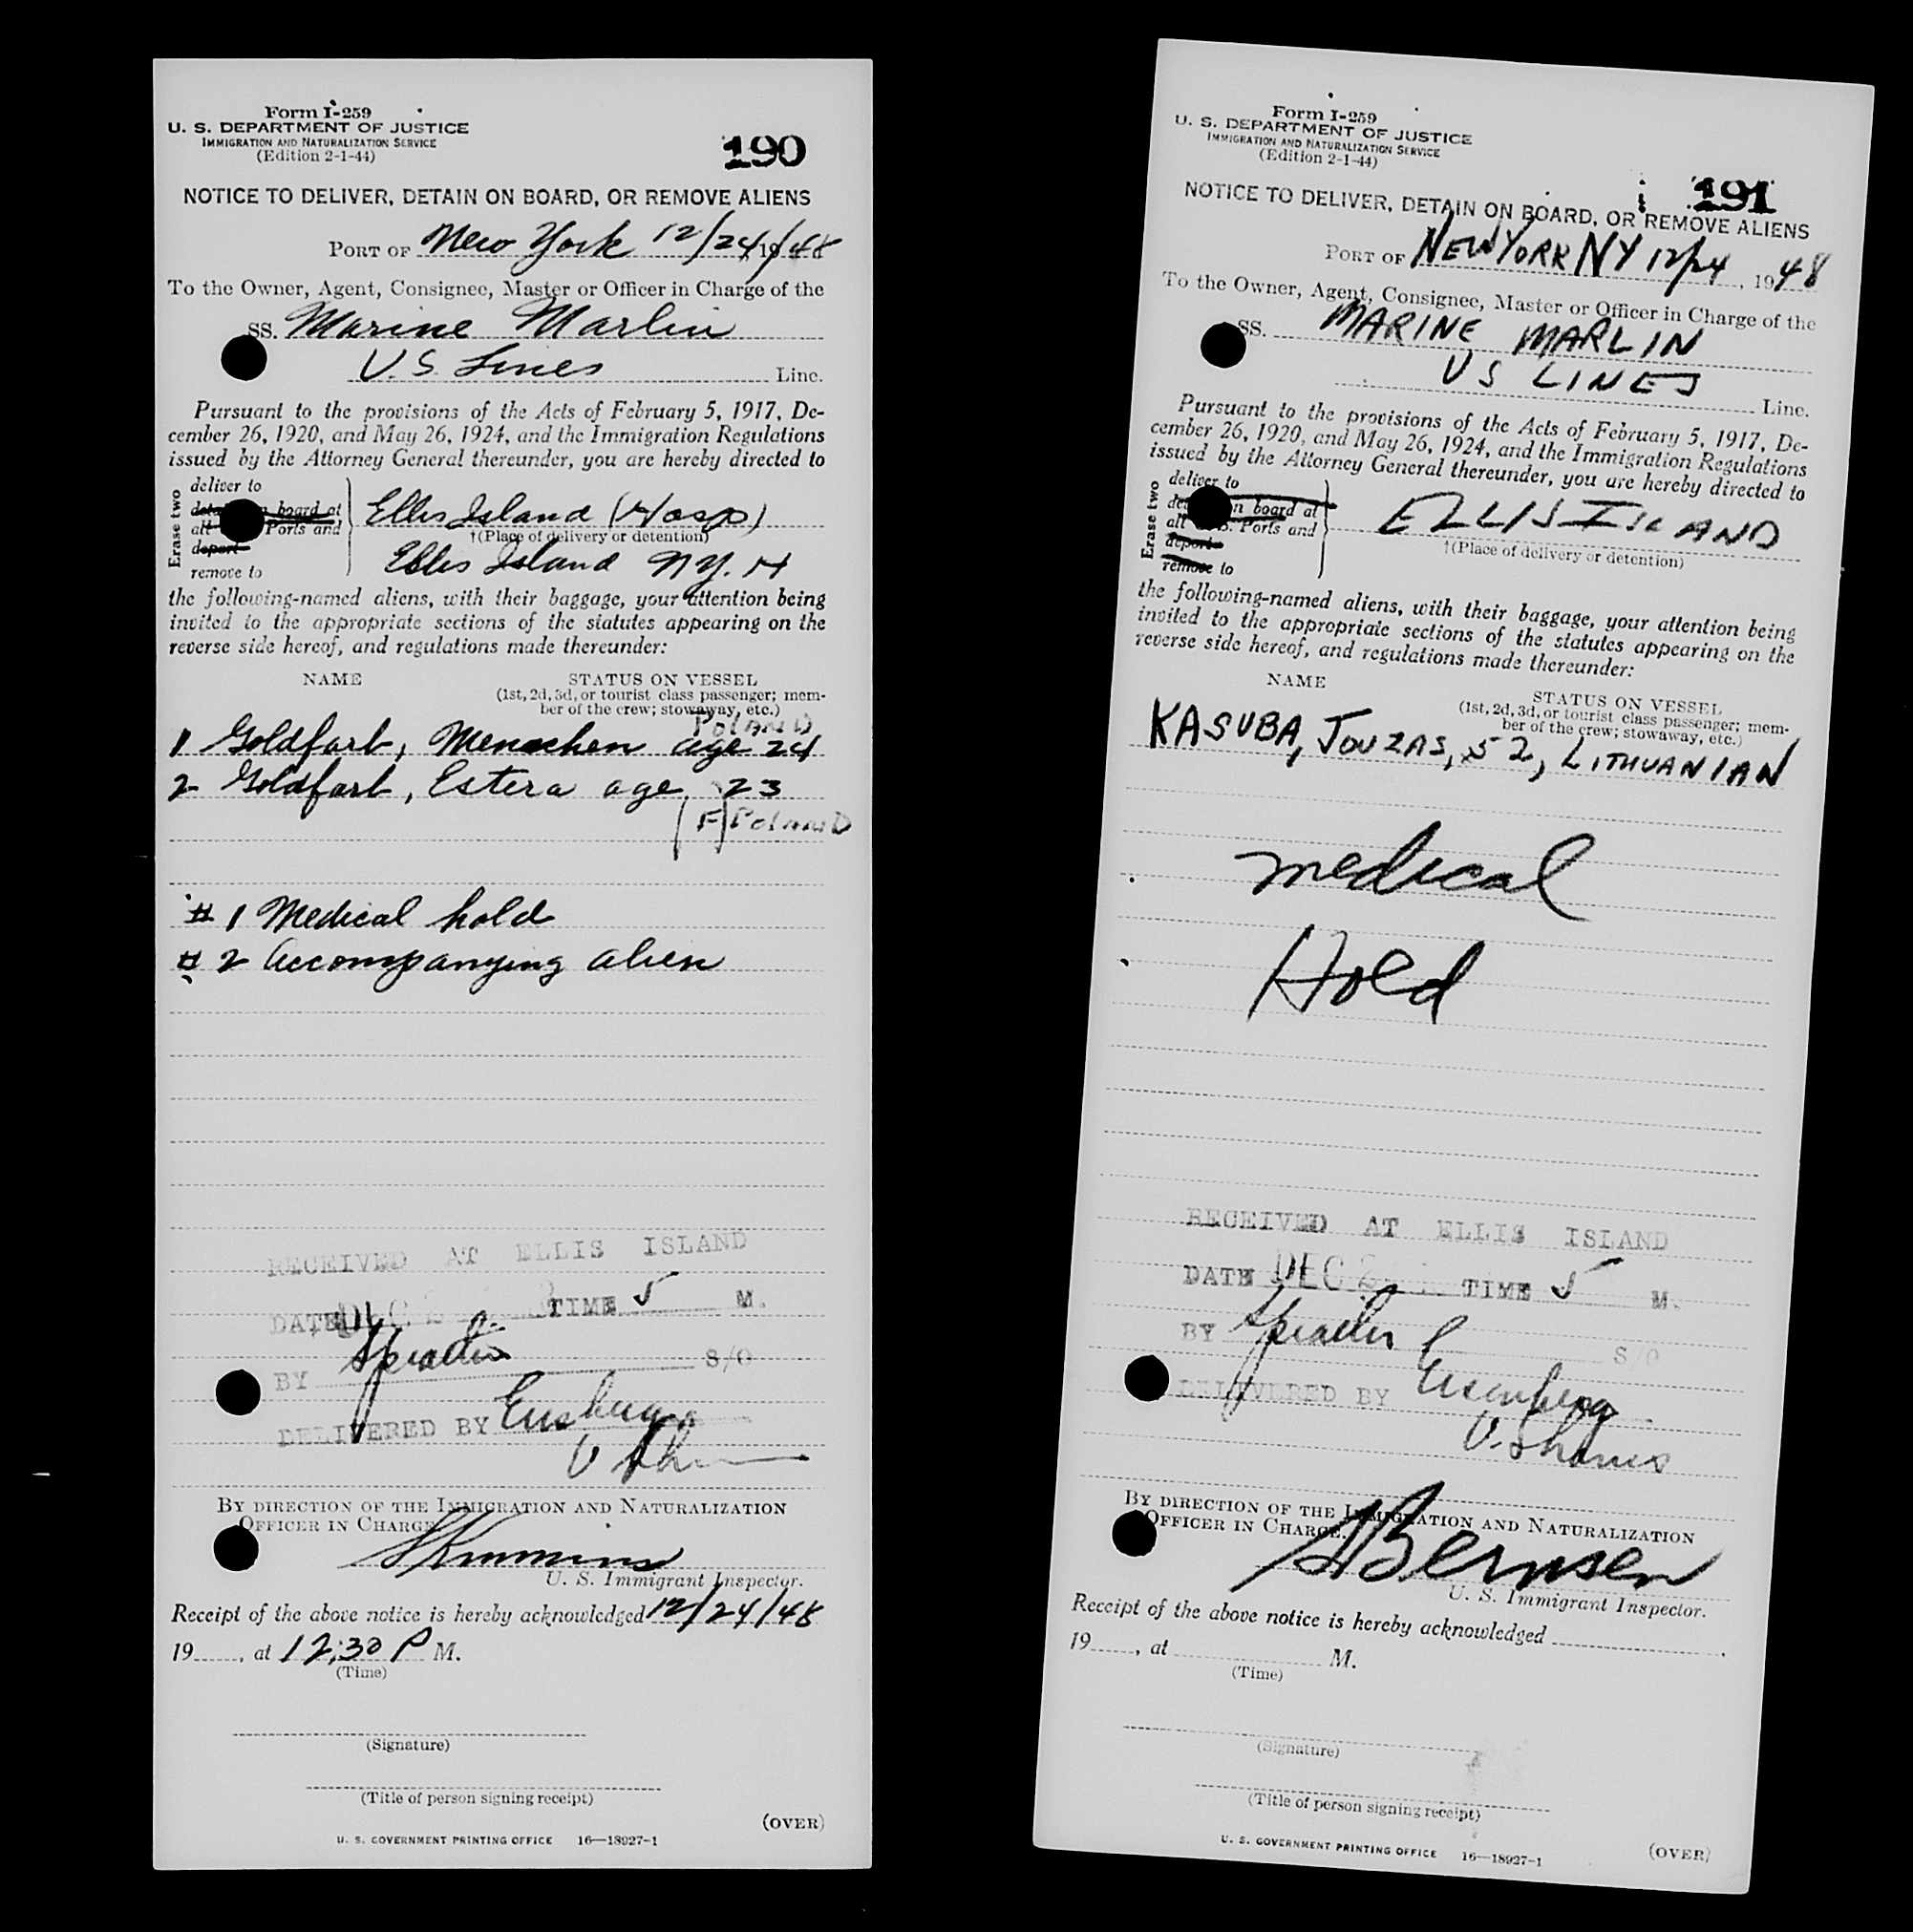 Form I-259
U. S. DEPARTMENT OF JUSTICE
IMMIGRATION AND NATURALIZATION SERVICE
(Edition 2-1-44)
190
NOTICE TO DELIVER, DETAIN ON BOARD, OR REMOVE ALIENS
PORT OF New York 12/24/1948
To the Owner, Agent, Consignee, Master or Officer in Charge of the
SS. Marine Marlin
U.S. Lines Line.
Pursuant to the provisions of the Acts of February 5, 1917, De-
cember 26, 1920, and May 26, 1924, and the Immigration Regulations
issued by the Attorney General thereunder, you are hereby directed to
Erase two
deliver to
board at
all Ports and
deport
remove to
Ellis Island (Hosp)
†(Place of delivery or detention)
Ellis Island NY. H
the following-named aliens, with their baggage, your attention being
invited to the appropriate sections of the statutes appearing on the
reverse side hereof, and regulations made thereunder:
NAME STATUS ON VESSEL
(1st, 2d, 3d, or tourist class passenger; mem-
ber of the crew; stowaway, etc.)
POLAND
1 Goldfarb, Menachen age 24
2 Goldfarb, Estera age 23
(F) POLAND
# 1 Medical hold
# 2 Accompanying alien
RECEIVED AT ELLIS ISLAND
DATE DEC 2 TIME 5 M.
BY S/O
DELIVERED BY
BY DIRECTION OF THE IMMIGRATION AND NATURALIZATION
OFFICER IN CHARGE.
U. S. Immigrant Inspector.
Receipt of the above notice is hereby acknowledged 12/24/48
19____, at 12:30 P M.
(Time)
(Signature)
(Title of person signing receipt)
(OVER)
U. S. GOVERNMENT PRINTING OFFICE 16—18927-1
Form I-259
U. S. DEPARTMENT OF JUSTICE
IMMIGRATION AND NATURALIZATION SERVICE
(Edition 2-1-44)
191
NOTICE TO DELIVER, DETAIN ON BOARD, OR REMOVE ALIENS
PORT OF NEW YORK NY 12/24, 1948
To the Owner, Agent, Consignee, Master or Officer in Charge of the
SS. MARINE MARLIN
US LINES Line.
Pursuant to the provisions of the Acts of February 5, 1917, De-
cember 26, 1920, and May 26, 1924, and the Immigration Regulations
issued by the Attorney General thereunder, you are hereby directed to
Erase two
deliver to
on board at
all Ports and
deport
remove to
ELLIS ISLAND
†(Place of delivery or detention)
the following-named aliens, with their baggage, your attention being
invited to the appropriate sections of the statutes appearing on the
reverse side hereof, and regulations made thereunder:
NAME STATUS ON VESSEL
(1st, 2d, 3d, or tourist class passenger; mem-
ber of the crew; stowaway, etc.)
KASUBA, JOUZAS, 52, LITHUANIAN
medical
Hold
RECEIVED AT ELLIS ISLAND
DATE DEC 2 TIME 5 M.
BY S/O
DELIVERED BY Eisenberg
BY DIRECTION OF THE IMMIGRATION AND NATURALIZATION
OFFICER IN CHARGE.
U. S. Immigrant Inspector.
Receipt of the above notice is hereby acknowledged
19____, at M.
(Time)
(Signature)
(Title of person signing receipt)
(OVER)
U. S. GOVERNMENT PRINTING OFFICE 16—18927-1